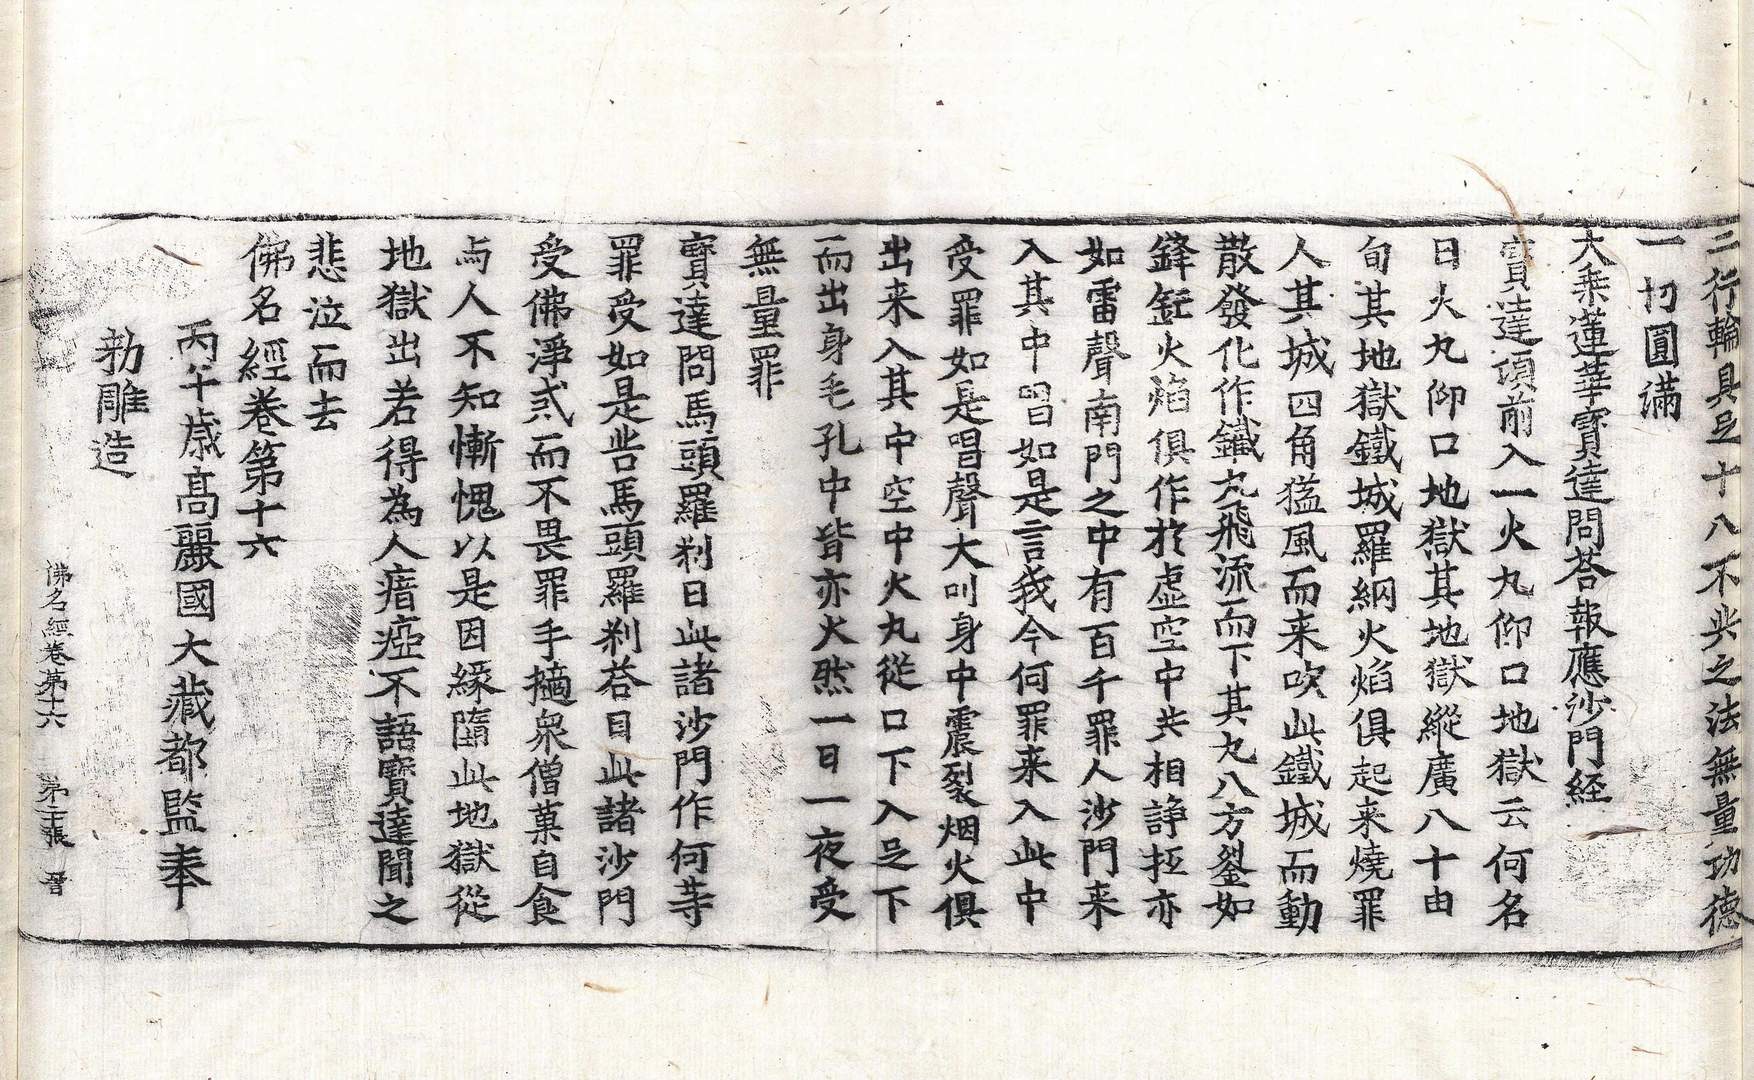 二行輪具足十八不共之法無量功德
一切圓滿
大乗蓮華寶達問荅報應沙門経
寶達頃前入一火丸仰口地獄云何名
日火丸仰口地獄其地獄縱廣八十由
旬其地獄鐵城羅網火焰俱起来燒罪
人其城四角猛風而来吹此鐵城而動
散發化作鐵丸飛流而下其丸八方鋑如
鋒鋩火焰俱作扵虚空中共相諍拞亦
如雷聲南門之中有百千罪人沙門来
入其中唱如是言我今何罪来入此中
受罪如是唱聲大叫身中震裂烟火俱
出来入其中空中火丸從口下入足下
而出身毛孔中皆亦火然一日一夜受
無量罪
寶達問馬頭羅刹曰此諸沙門作何等
罪受如是苦馬頭羅刹荅曰此諸沙門
受佛淨戒而不畏罪手擿衆僧菓自食
与人不知慚愧以是因緣墮此地獄從
地獄出若得為人瘖瘂不語寶達聞之
悲泣而去
佛名經卷第十六
丙午歳髙麗國大藏都監奉
勑雕造
佛名經卷第十六 第二十張